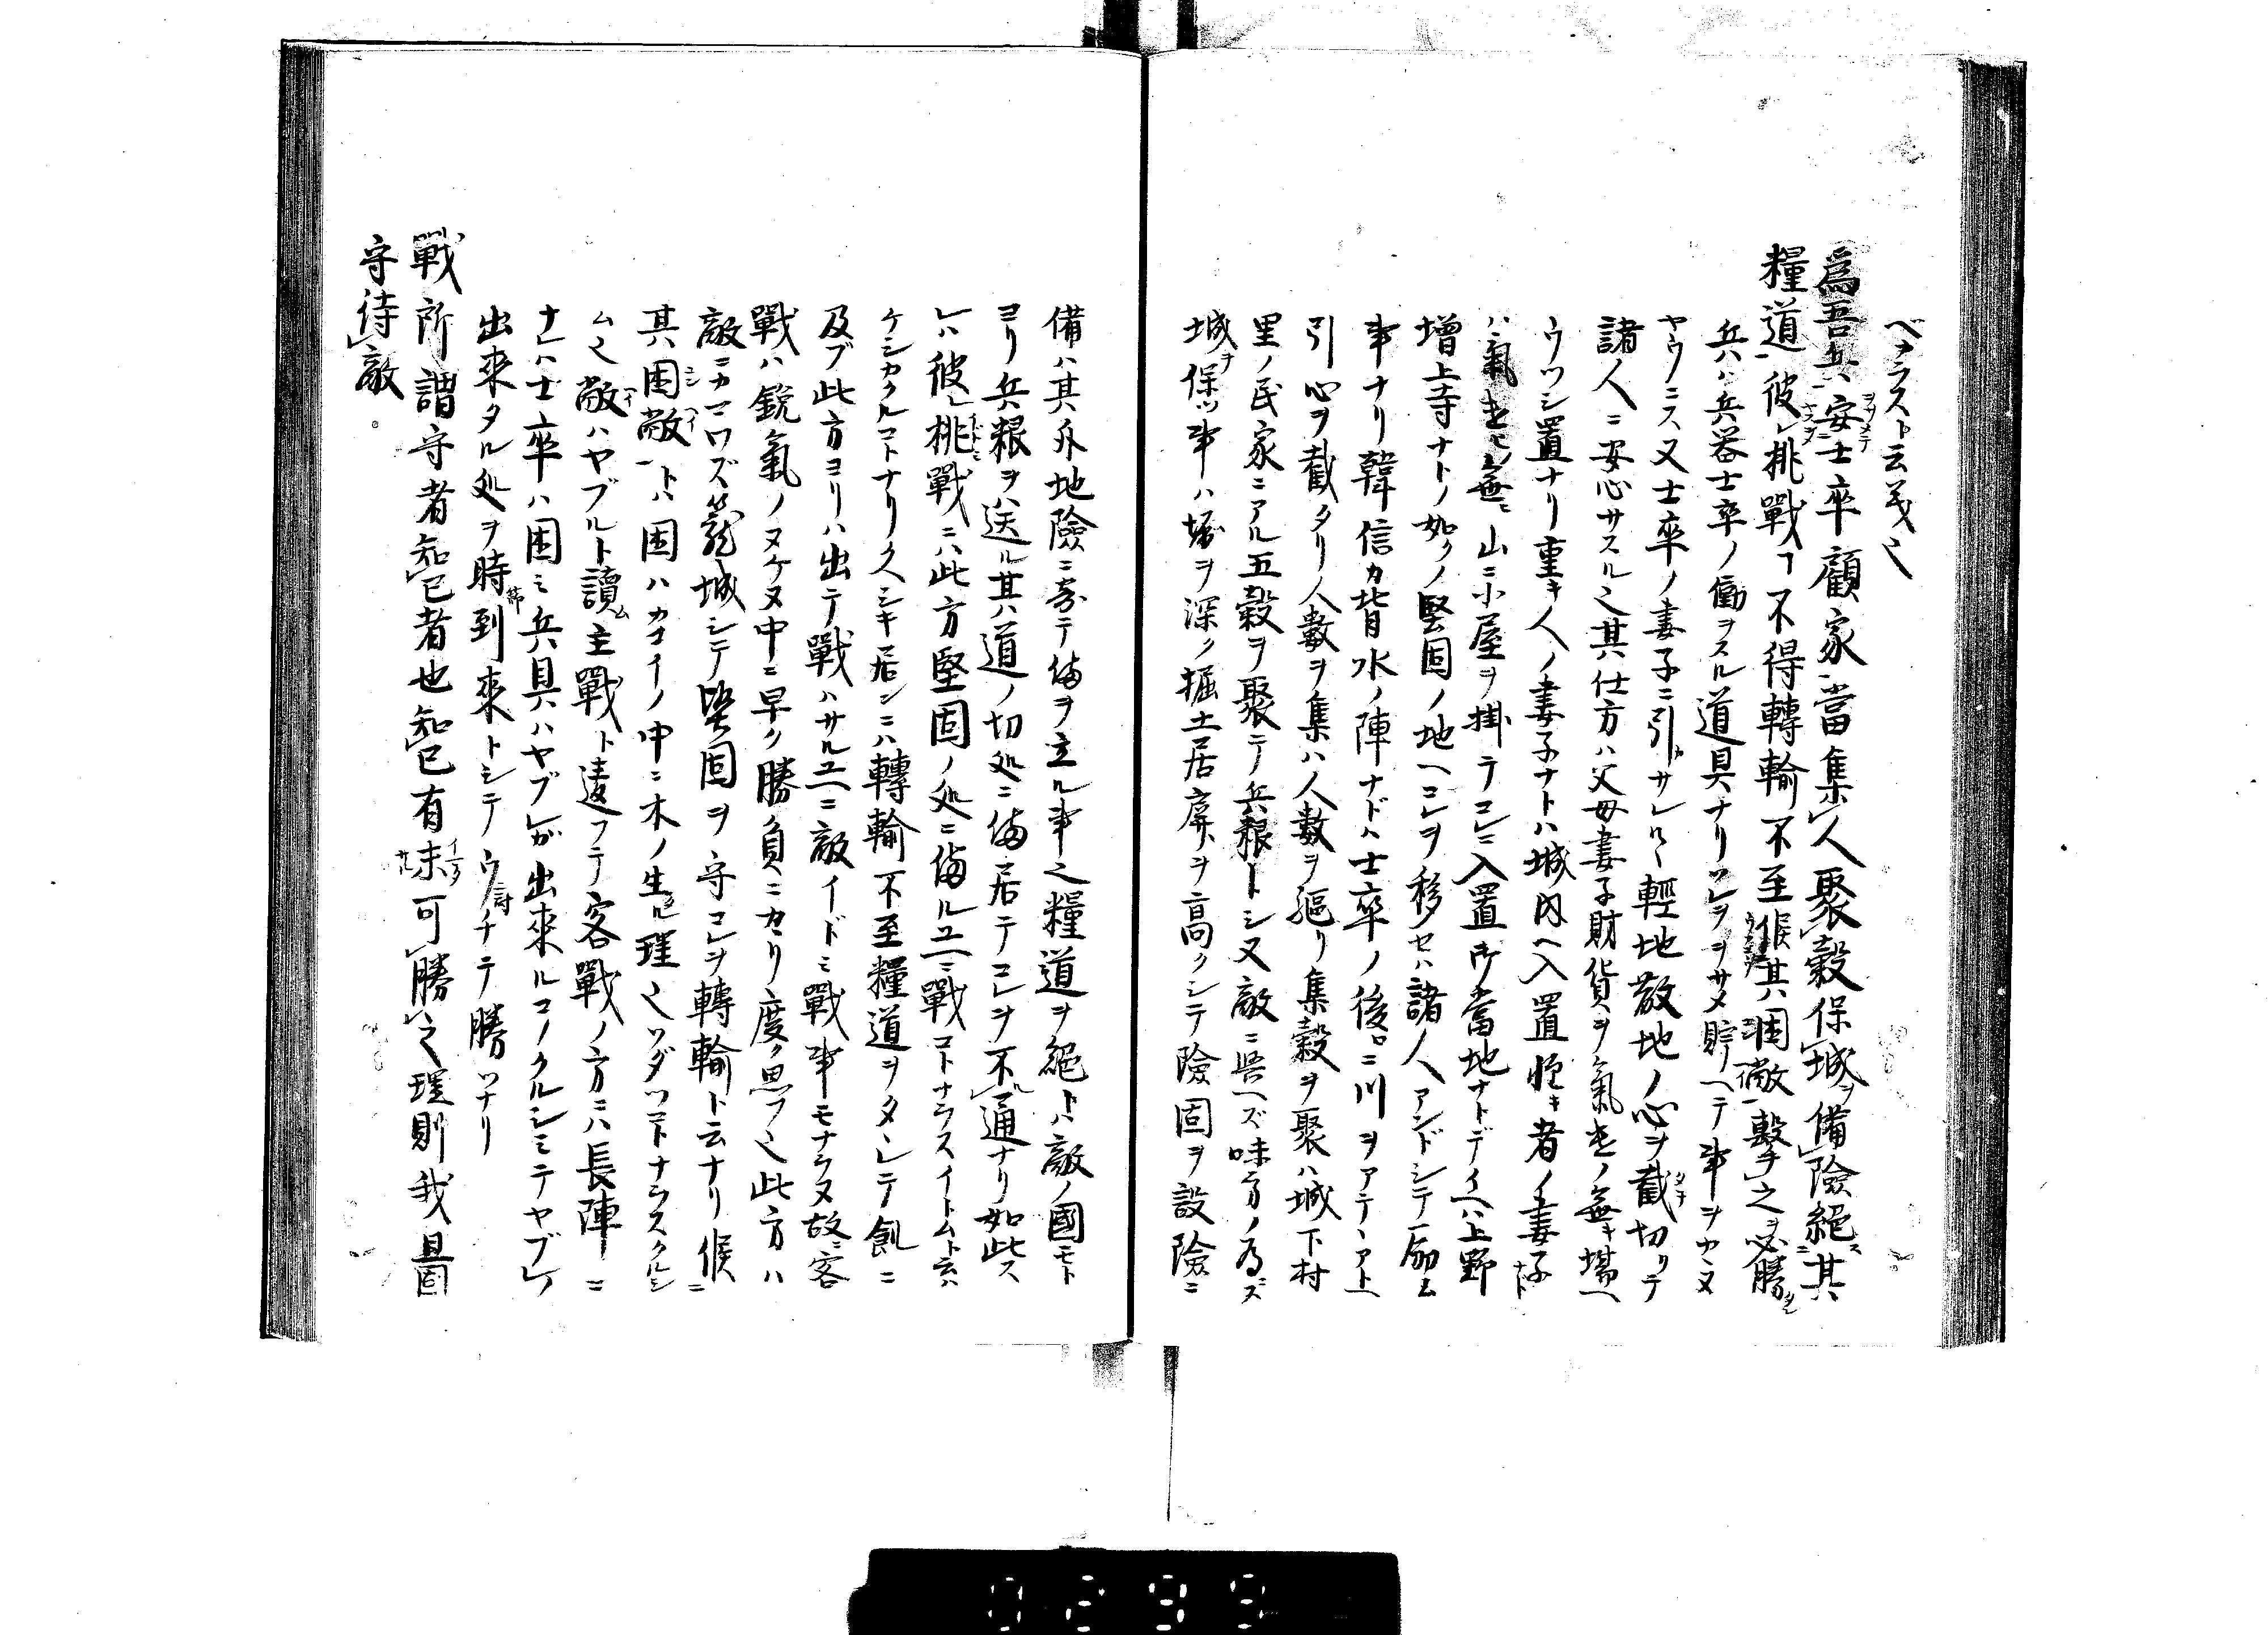 ベカラスト云義也
為吾兵安士卒顧家當集人聚穀保城備險絕其
糧道彼挑戰不得轉輸不至候其困敝擊之必勝
兵ハ兵器士卒ノ働ヲスル道具ナリコレヲヲサメ貯ヘテ事ヲカヌ
ヤウニス又士卒ノ妻子ニ引サレ輕地散地ノ心ヲ截切リテ
諸人ニ安心サスル也其仕方ハ父母妻子財貨ヲ氣遣ノ無キ場ヘ
ウツシ置ナリ重キ人ノ妻子ナトハ城内ヘ入置軽キ者ノ妻子ナト
ハ氣遣モ無山ニ小屋ヲ掛テコレニ入置御當地ナトデイヘハ上野
增上寺ナトノ如クノ堅固ノ地ヘコレヲ移セハ諸人アンドシテ一働ム
事ナリ韓信カ背水ノ陣ナドハ士卒ノ後ロニ川ヲアテヽアトヘ
引心ヲ截タリ人數ヲ集ハ人數ヲ驅リ集穀ヲ聚ハ城下村
里ノ民家ニアル五穀ヲ聚テ兵粮トシ又敵ニ與ヘズ味方ノ為ズ
城ヲ保ツ事ハ堀ヲ深ク掘土居屏ヲ高クシテ險固ヲ設險ニ
備ハ其外地險ニ寄テ備ヲ立ル事也糧道ヲ絕トハ敵ノ國モト
ヨリ兵粮ヲハ送ル其ハ道ノ切処ニ備居テコレヲ不通ナリ如此ス
レハ彼挑戰ニハ此方堅固ノ処ニ備ルユヘニ戰コトナラスイトムト云ハ
ケシカクルコトナリ久シキ居ンニハ轉輸不至糧道ヲタヽレテ飢ニ
及ブ此方ヨリハ出テ戰ハサルユヘニ敵イドミ戰事モナラヌ故ニ客
戰ハ銳氣ノヌケヌ中ニ早ク勝負ニカヽリ度ク思フ也此方ハ
敵ニカマワズ籠城シテ堅固ヲ守コレヲ轉輸ト云ナリ候ニ
其困敝トハ困ハカコイノ中ニ木ノ生ル理也ソダツコトナラスクルシ
ム也敝ハヤブルト讀主戰ト違フテ客戰ノ方ニハ長陣ニ
ナレハ士卒ハ困ミ兵具ハヤブレガ出來ルコノクルシミテヤブレ
出來タル処ヲ時節到來トシテウチテ勝ツナリ
戰所謂守者知已者也知已有未可勝之理則我且固
守待敵。